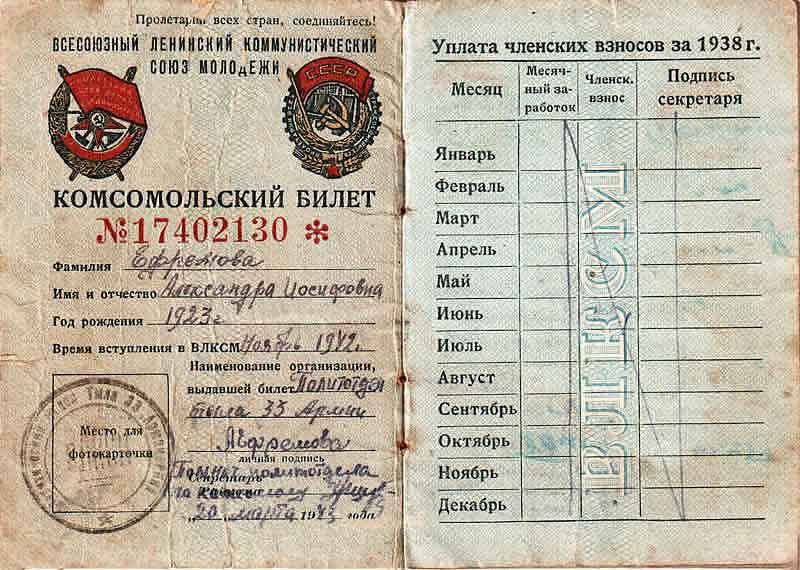 Пролетарии всех стран, соединяйтесь!
ВСЕСОЮЗНЫЙ ЛЕНИНСКИЙ КОММУНИСТИЧЕСКИЙ
СОЮЗ МОЛОДЕЖИ
СССР
КОМСОМОЛЬСКИЙ БИЛЕТ
№17402130 *
Фамилия Ефремова
Имя и отчество Александра Иосифовна
Год рождения 1923 г
Время вступления в ВЛКСМ Ноябрь 1942.
Наименование организации,
выдавшей билет Политотдел
тыла 33 Армии
Место для
фотокарточки
АЕфремова
личная подпись
Секретарь
Помнач политотдела
по комсомолу
„20 марта 1943 года
Уплата членских взносов за 1938 г.
Месяц
Месяч-
ный за-
работок
Членск.
взнос
Подпись
секретаря
Январь
Февраль
Март
Апрель
Май
Июнь
Июль
Август
Сентябрь
Октябрь
Ноябрь
Декабрь
ВЛКСМ